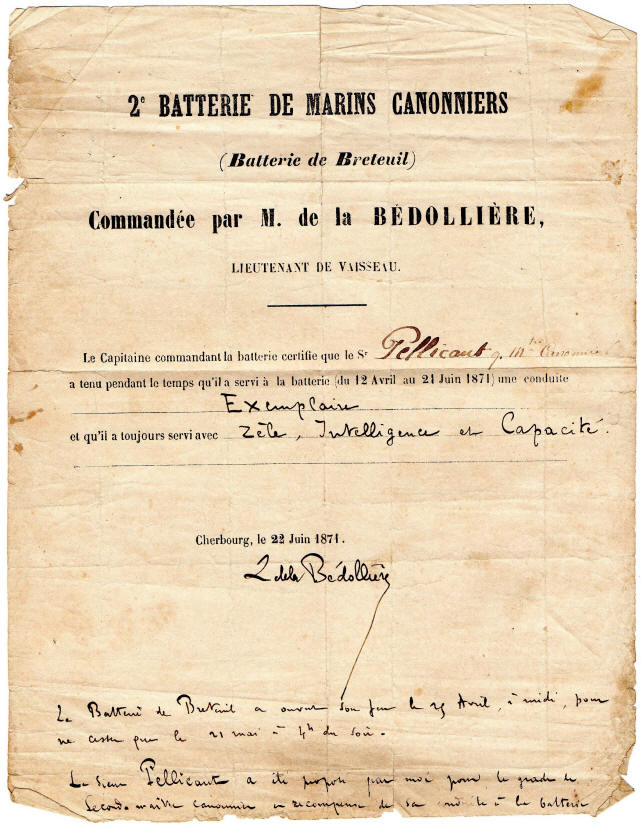 2e BATTERIE DE MARINS CANONNIERS
(Batterie de Breteuil)
Commandée par M. de la BÉDOLLIÈRE,
LIEUTENANT DE VAISSEAU.
Le Capitaine commandant la batterie certifie que le Sr Pellicant q. Mtre Canonnier
a tenu pendant le temps qu'il a servi à la batterie (du 12 Avril au 21 Juin 1871) une conduite
Exemplaire
et qu'il a toujours servi avec Zèle, Intelligence et Capacité.
Cherbourg, le 22 Juin 1871.
L de la Bédollière
La Batterie de Breteuil a ouvert son feu le 25 Avril, à midi, pour
ne cesser que le 21 mai à 4h du soir.
Le Sieur Pellicant a été proposé par moi pour le grade de
Second-maître canonnier en récompense de sa conduite à la batterie